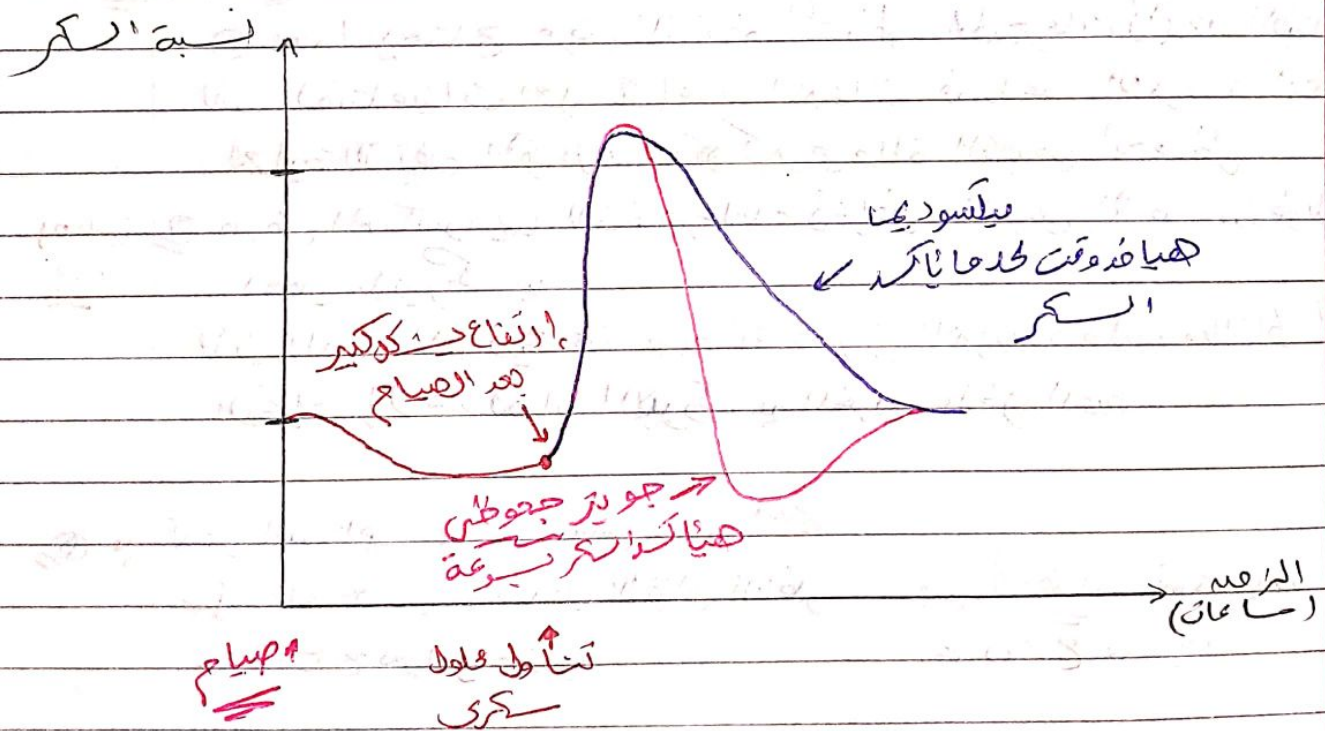 نسبة السكر
ميكسوديما
هياخد وقت لحد ما يأكسد
السكر
إرتفاع بشكل كبير
بعد الصيام
جويتر جحوظى
هيأكسد السكر بسرعة
الزمن
(ساعات)
صيام
تناول محلول
سكرى